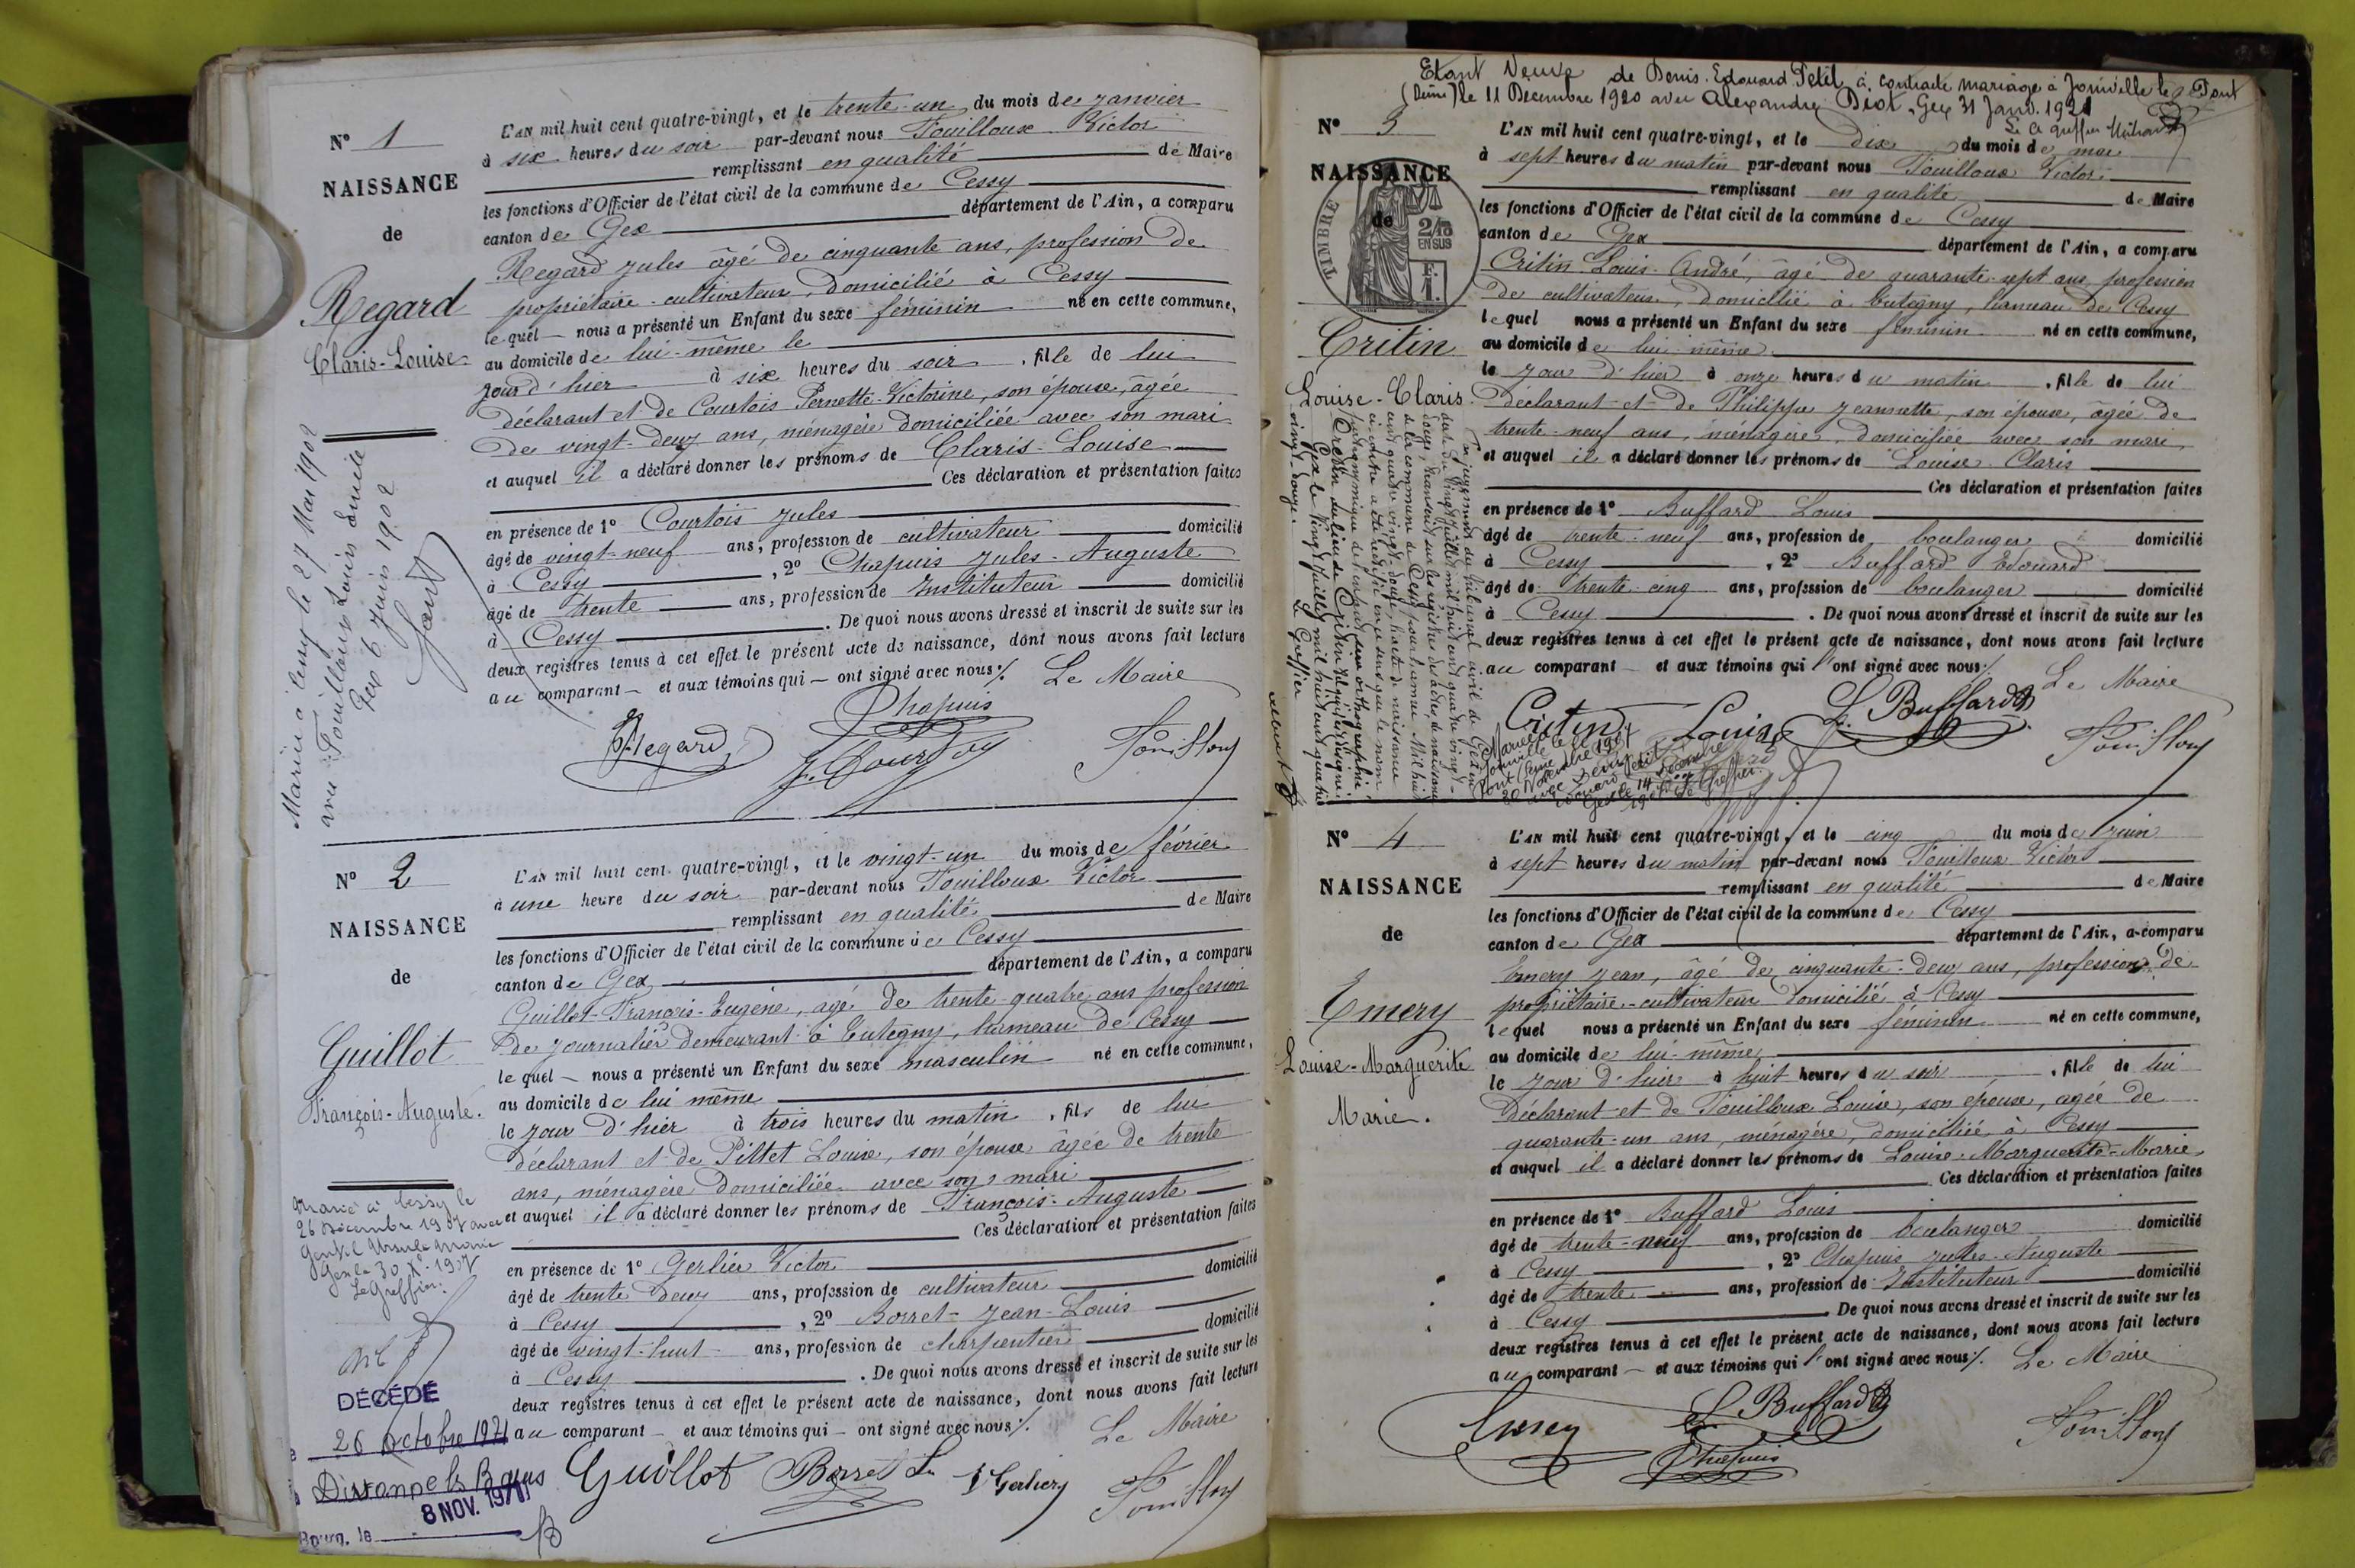 N° 1
NAISSANCE
de
Regard
Claris-Louise
Marié à Cessy le 27 Mai 1902
avec Fouilloux Louis Emile
Gex 6 Juin 1902
L'AN mil huit cent quatre-vingt, et le trente-un du mois de janvier
à six heures du soir par-devant nous Fouilloux Victor
remplissant en qualité de Maire
les fonctions d'Officier de l'état civil de la commune de Cessy
canton de Gex département de l'Ain, a comparu
Regard Jules âgé de cinquante ans, profession de
propriétaire-cultivateur, domicilié à Cessy
lequel nous a présenté un Enfant du sexe féminin né en cette commune,
au domicile de lui-même le
jour d'hier à six heures du soir, fille de lui
déclarant et de Courtois Pernette-Victorine, son épouse, âgée
de vingt-deux ans, ménagère domiciliée avec son mari
et auquel il a déclaré donner les prénoms de Claris-Louise
Ces déclaration et présentation faites
en présence de 1° Courtois Jules
âgé de vingt-neuf ans, profession de cultivateur domicilié
à Cessy, 2° Chapuis Jules-Auguste
âgé de trente ans, profession de Instituteur domicilié
à Cessy. De quoi nous avons dressé et inscrit de suite sur les
deux registres tenus à cet effet le présent acte de naissance, dont nous avons fait lecture
au comparant et aux témoins qui ont signé avec nous ./. Le Maire
Chapuis
Regard J. Courtois Fouilloux
N° 2
NAISSANCE
de
Guillot
François-Auguste.
Marié à Cessy le
26 Décembre 1907 avec
Gentil Ursule Marie
Gex le 30 Xe 1907
Le Greffier:
DÉCÉDÉ
26 octobre 1971
Divonne les Bains
8 NOV. 1971
Bourg, le
L'AN mil huit cent quatre-vingt, et le vingt-un du mois de février
à une heure du soir par-devant nous Fouilloux Victor
remplissant en qualité de Maire
les fonctions d'Officier de l'état civil de la commune de Cessy
canton de Gex département de l'Ain, a comparu
Guillot-François-Eugène, âgé de trente-quatre ans profession
de journalier demeurant à Tutegny, hameau de Cessy
lequel nous a présenté un Enfant du sexe masculin né en cette commune,
au domicile de lui même
le jour d'hier à trois heures du matin, fils de lui
déclarant et de Pittet Louise, son épouse âgée de trente
ans, ménagère domiciliée avec son mari
et auquel il a déclaré donner les prénoms de François-Auguste
Ces déclaration et présentation faites
en présence de 1° Gerlier Victor
âgé de trente deux ans, profession de cultivateur domicilié
à Cessy, 2° Borret-Jean-Louis
âgé de vingt-huit ans, profession de charpentier domicilié
à Cessy. De quoi nous avons dressé et inscrit de suite sur les
deux registres tenus à cet effet le présent acte de naissance, dont nous avons fait lecture
au comparant et aux témoins qui ont signé avec nous ./. Le Maire
Guillot Borret Ls V Gerlier Fouilloux
Etant Veuve de Denis-Edouard Petit à contracté mariage à Joinville le Pont
(Seine) le 11 Décembre 1920 avec Alexandre Diot. Gex 31 Janv. 1921
Le Greffier
N° 3
NAISSANCE
de
TIMBRE
2/10
EN SUS
F.
1.
Critin
Louise-Claris.
Un jugement du tribunal civil de Gex en
date du vingt juillet mil huit cent quatre vingt
douze, transcrit sur les registres des actes de naissance
de la commune de Cessy pour l'année Mil huit
cent quatre vingt douze, l'acte de naissance
ci contre a été rectifié en ce sens que le nom
patronymique
Cretin au lieu de Critin
Gex le vingt juillet mil huit cent quatre
vingt-douze. Le Greffier
L'AN mil huit cent quatre-vingt, et le dix du mois de mai
à sept heures du matin par-devant nous Fouilloux Victor
remplissant en qualité de Maire
les fonctions d'Officier de l'état civil de la commune de Cessy
canton de Gex département de l'Ain, a comparu
Critin Louis-André, âgé de quarante-sept ans, profession
de cultivateur, domicilié à Tutegny, hameau de Cessy
lequel nous a présenté un Enfant du sexe féminin né en cette commune,
au domicile de lui même
le jour d'hier à onze heures du matin, fille de lui
déclarant et de Philippe Jeannette, son épouse, âgée de
trente-neuf ans, ménagère, domiciliée avec son mari,
et auquel il a déclaré donner les prénoms de Louise-Claris
Ces déclaration et présentation faites
en présence de 1° Buffard Louis
âgé de trente-neuf ans, profession de boulanger domicilié
à Cessy, 2° Buffard Edouard
âgé de trente cinq ans, profession de boulanger domicilié
à Cessy. De quoi nous avons dressé et inscrit de suite sur les
deux registres tenus à cet effet le présent acte de naissance, dont nous avons fait lecture
au comparant et aux témoins qui l'ont signé avec nous ./. Le Maire
Critin Louis L. Buffard Fouilloux
Mariée à
Joinville le
Pont (Seine) le
30 Novembre 1907
avec Denis
Edouard Petit
Gex le 14 Décembre
1907 Le Greffier
N° 4
NAISSANCE
de
Emery
Louise-Marguerite
Marie.
L'AN mil huit cent quatre-vingt, et le cinq du mois de juin
à sept heures du matin par-devant nous Fouilloux Victor
remplissant en qualité de Maire
les fonctions d'Officier de l'état civil de la commune de Cessy
canton de Gex département de l'Ain, a comparu
Emery Jean, âgé de cinquante-deux ans, profession de
propriétaire-cultivateur domicilié à Cessy
lequel nous a présenté un Enfant du sexe féminin né en cette commune,
au domicile de lui-même
le jour d'hier à huit heures du soir, fille de lui
déclarant et de Fouilloux Louise, son épouse, agée de
quarante-un ans, ménagère, domiciliée à Cessy
et auquel il a déclaré donner les prénoms de Louise-Marguerite-Marie
Ces déclaration et présentation faites
en présence de 1° Buffard Louis
âgé de trente-neuf ans, profession de boulanger domicilié
à Cessy, 2° Chapuis Jules-Auguste
âgé de trente ans, profession de Instituteur domicilié
à Cessy. De quoi nous avons dressé et inscrit de suite sur les
deux registres tenus à cet effet le présent acte de naissance, dont nous avons fait lecture
au comparant et aux témoins qui l'ont signé avec nous ./. Le Maire
Emery L. Buffard Fouilloux
Chapuis